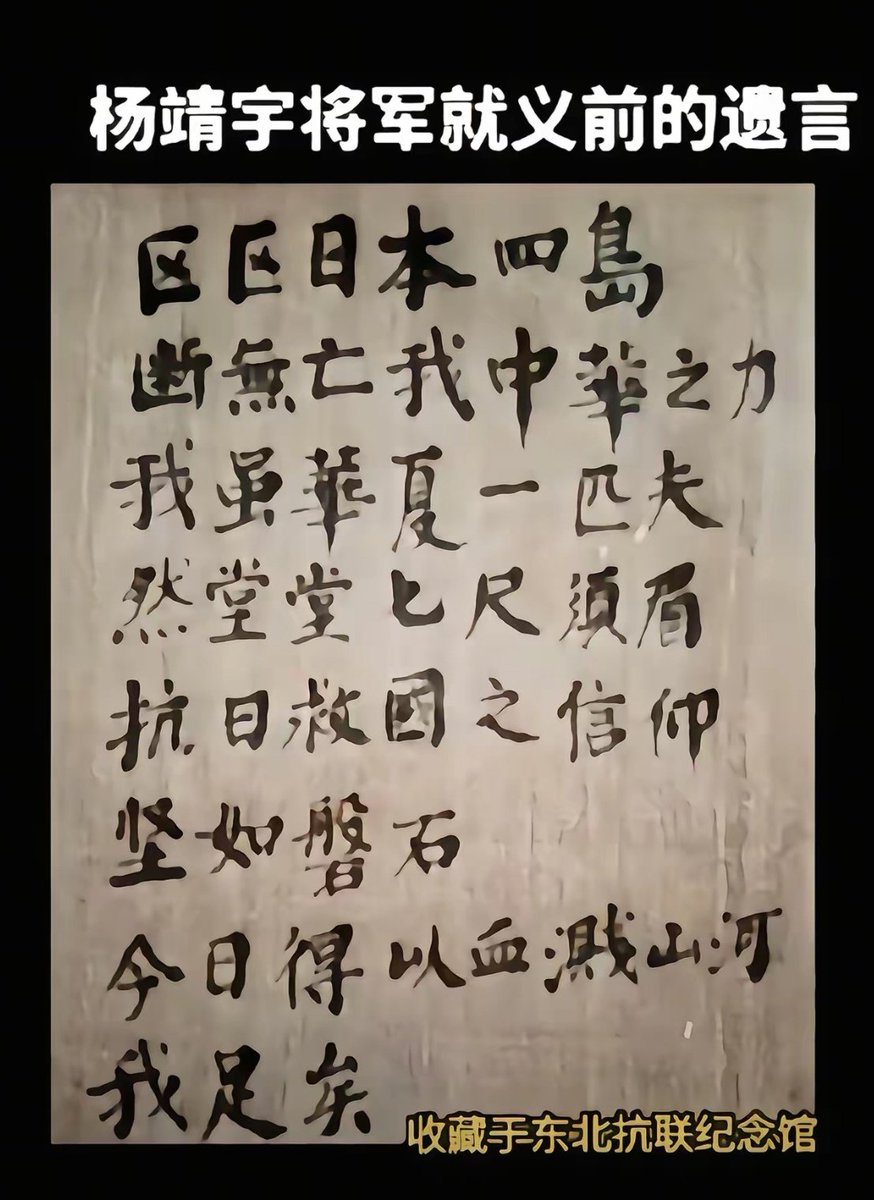 杨靖宇将军就义前的遗言
区区日本四島
断無亡我中華之力
我虽華夏一匹夫
然堂堂七尺須眉
抗日救國之信仰
坚如磐石
今日得以血溅山河
我足矣
收藏于东北抗联纪念馆